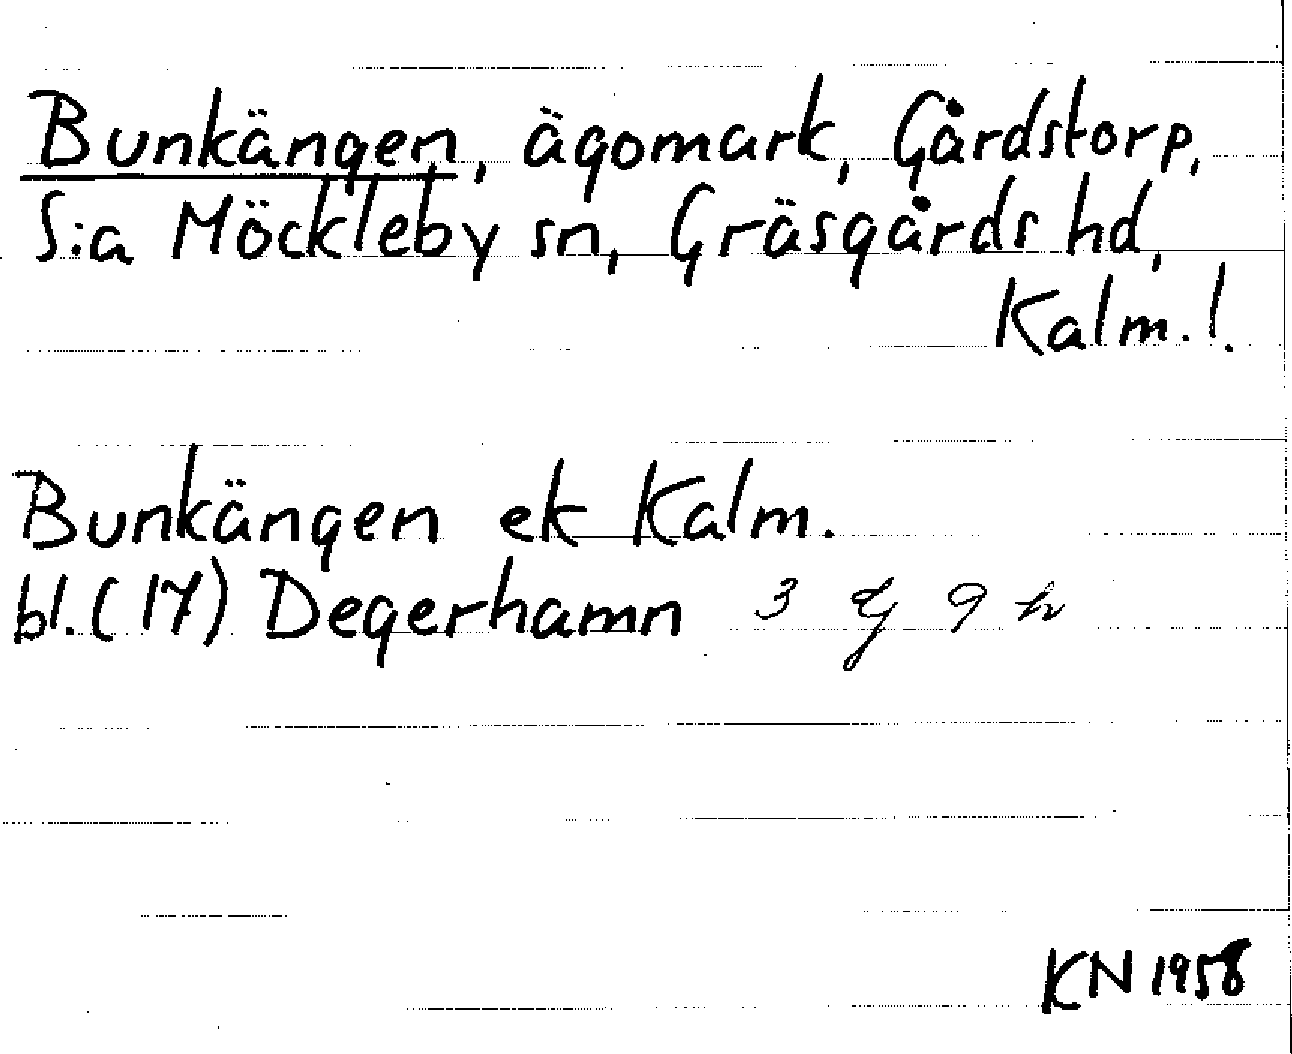 Bunkängen, ägomark, Gårdstorp,
S:a Möckleby sn, Gräsgårds hd,
Kalm.!
Bunkängen ek Kalm.
bl. (17) Degerhamn 3 G 9 h
KN 1958